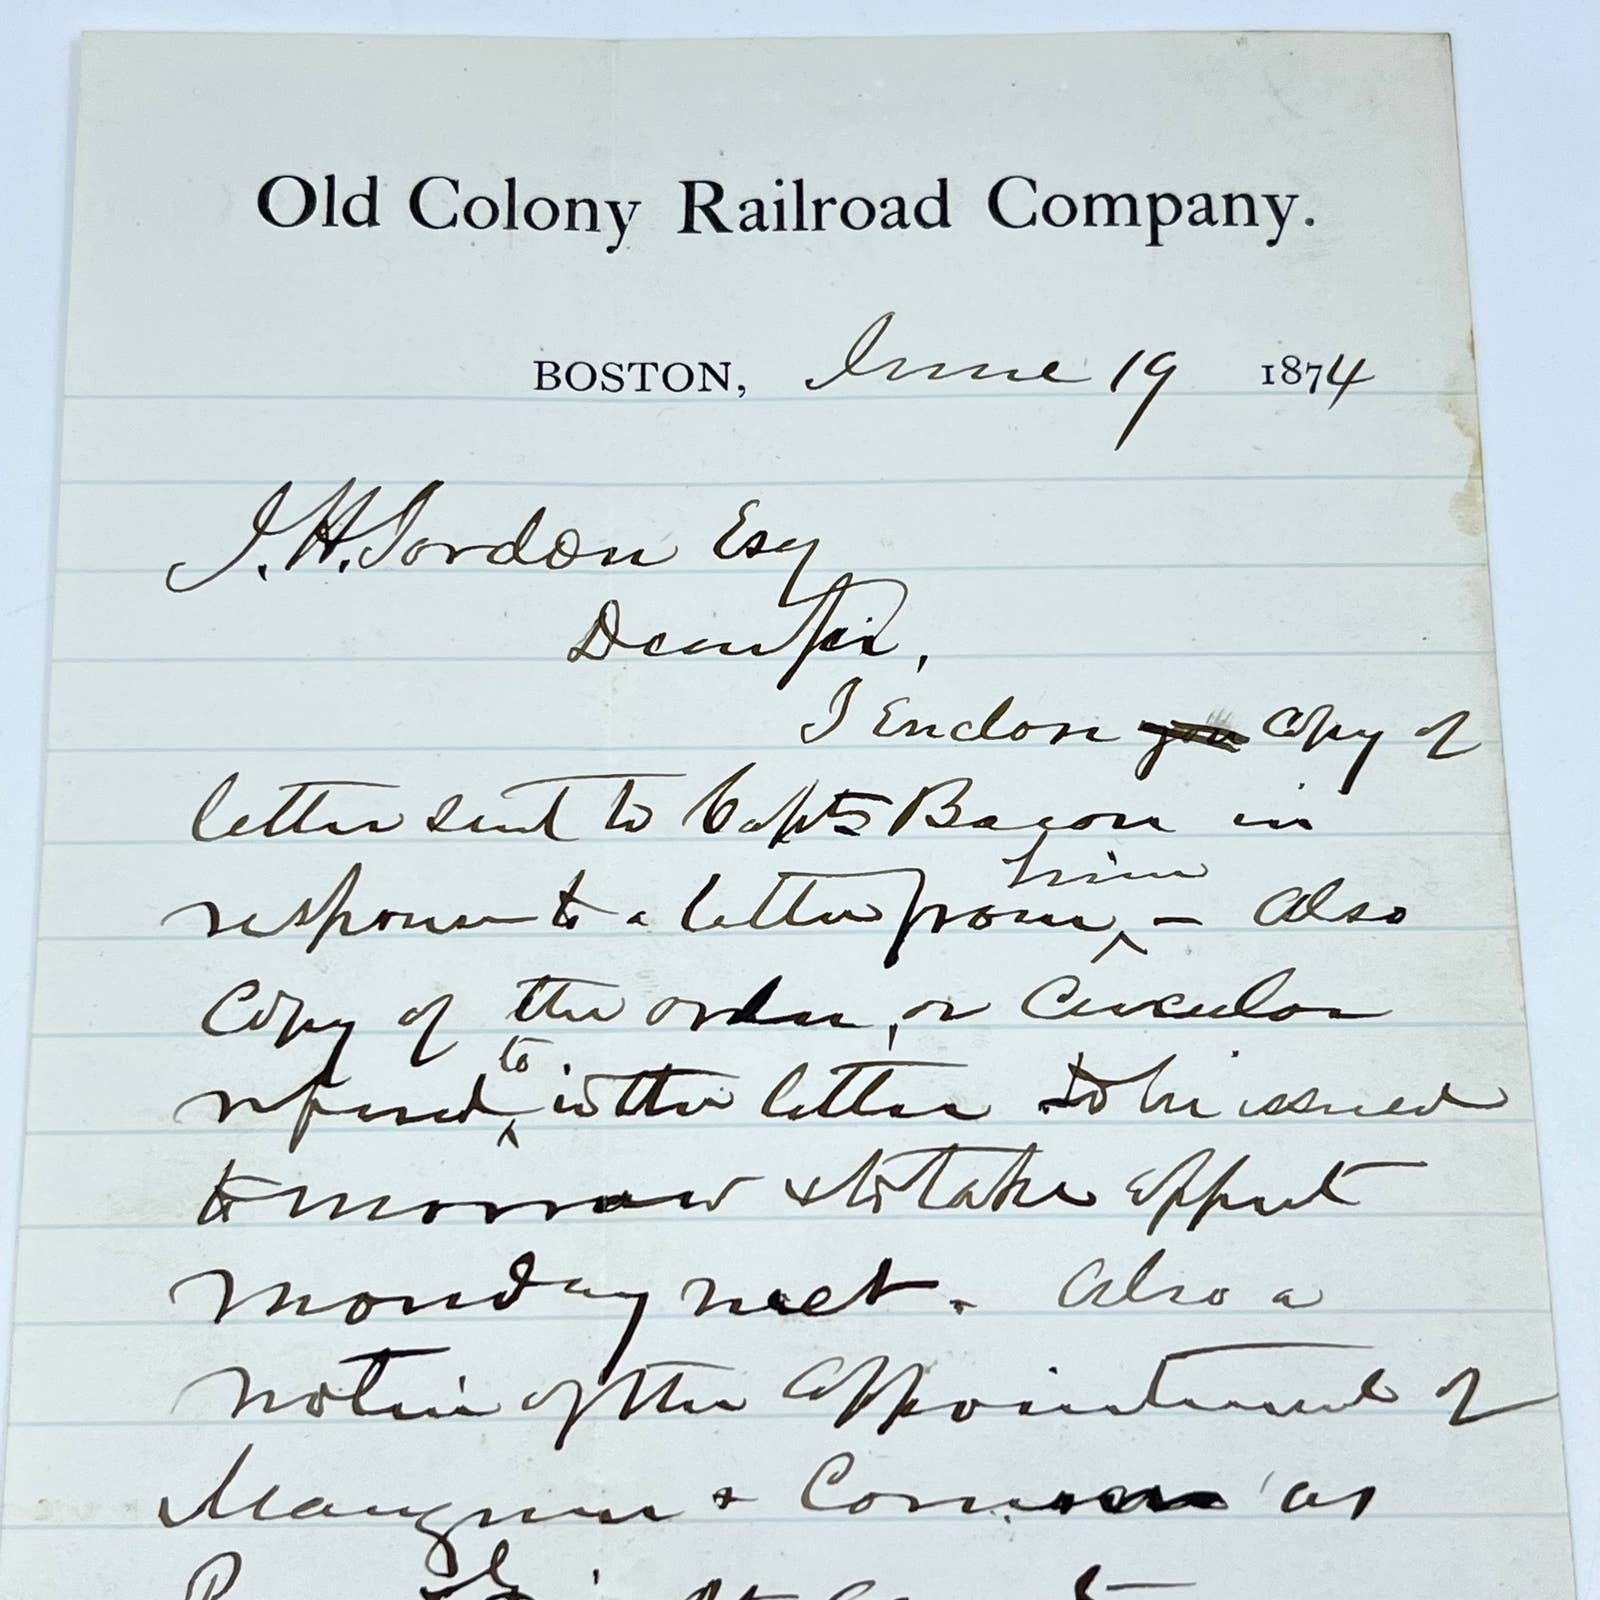 Old Colony Railroad Company.
BOSTON, June 19 1874
J. H. Jordon Esq
Dear Sir,
I Enclose you Copy of
letter sent to Capts Bacon in
response to a letter from him – Also
Copy of the order, or Circular
referred to in the letter to be issued
tomorrow & to take effect
Monday next. Also a
notice of the Appointment of
& as